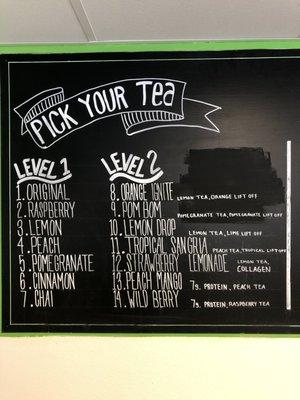 PICK YOUR TEA
LEVEL 1
1. ORIGINAL
2. RASPBERRY
3. LEMON
4. PEACH
5. POMEGRANATE
6. CINNAMON
7. CHAI
LEVEL 2
8. ORANGE IGNITE LEMON TEA, ORANGE LIFT OFF
9. POM BOM POMEGRANATE TEA, POMEGRANATE LIFT OFF
10. LEMON DROP LEMON TEA, LIME LIFT OFF
11. TROPICAL SANGRIA PEACH TEA, TROPICAL LIFT OFF
12. STRAWBERRY LEMONADE LEMON TEA, COLLAGEN
13. PEACH MANGO 7g PROTEIN, PEACH TEA
14. WILD BERRY 7g PROTEIN, RASPBERRY TEA